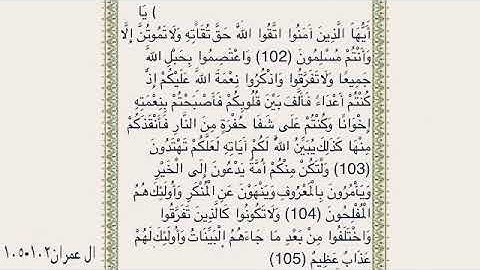 ( يَا
أَيُّهَا الَّذِينَ آمَنُوا اتَّقُوا اللَّهَ حَقَّ تُقَاتِهِ وَلَا تَمُوتُنَّ إِلَّا
وَأَنْتُمْ مُسْلِمُونَ (102) وَاعْتَصِمُوا بِحَبْلِ اللَّهِ
جَمِيعًا وَلَا تَفَرَّقُوا وَاذْكُرُوا نِعْمَةَ اللَّهِ عَلَيْكُمْ إِذْ
كُنْتُمْ أَعْدَاءً فَأَلَّفَ بَيْنَ قُلُوبِكُمْ فَأَصْبَحْتُمْ بِنِعْمَتِهِ
إِخْوَانًا وَكُنْتُمْ عَلَى شَفَا حُفْرَةٍ مِنَ النَّارِ فَأَنْقَذَكُمْ
مِنْهَا كَذَلِكَ يُبَيِّنُ اللَّهُ لَكُمْ آيَاتِهِ لَعَلَّكُمْ تَهْتَدُونَ
(103) وَلْتَكُنْ مِنْكُمْ أُمَّةٌ يَدْعُونَ إِلَى الْخَيْرِ
وَيَأْمُرُونَ بِالْمَعْرُوفِ وَيَنْهَوْنَ عَنِ الْمُنْكَرِ وَأُولَئِكَ هُمُ
الْمُفْلِحُونَ (104) وَلَا تَكُونُوا كَالَّذِينَ تَفَرَّقُوا
وَاخْتَلَفُوا مِنْ بَعْدِ مَا جَاءَهُمُ الْبَيِّنَاتُ وَأُولَئِكَ لَهُمْ
عَذَابٌ عَظِيمٌ (105)
ال عمران١٠٢-١٠٥